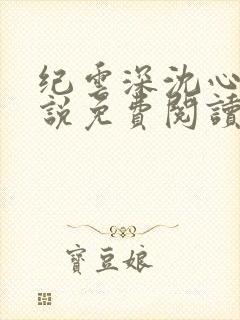 纪雲深沈心
說免費閱讀
寶豆娘